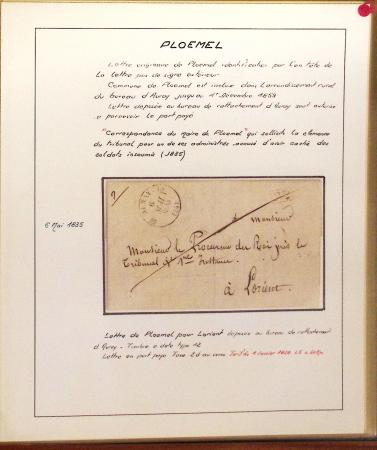 PLOEMEL
Lettre originaire de Ploemel identification par l'en tête de
la lettre pas de signe extérieur
Commune de Ploemel est incluse dans l'arrondissement rural
du bureau d'Auray jusqu'au 1er Décembre 1859
Lettre déposée au bureau de rattachement d'Auray seul autorisé
a percevoir le port payé
"Correspondance du maire de Ploemel" qui sollicite la clémence
du tribunal pour un de ses administrés accusé d'avoir caché des
soldats insoumis (1835)
6 Mai 1835
Monsieur
Monsieur le Procureur du Roi près le
Tribunal de 1ère Instance
à Lorient.
Lettre de Ploemel pour Lorient déposée au bureau de rattachement
d'Auray - Timbre a date type 12
Lettre en port payé Taxe 2d au verso Tarif du 1 Janvier 1828